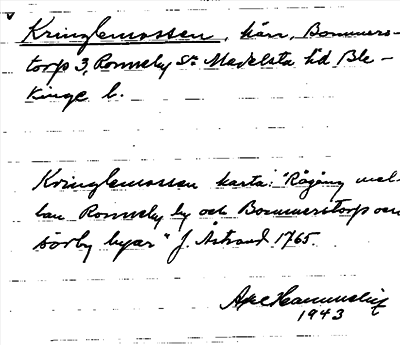 Kringlemossen, kärr, Bommers-
torp 3, Ronneby Sn Medelsta hd Ble-
kinge l.
Kringlemossen karta: "Rågång mel-
lan Ronneby by och Bommerstorp och
Sörby byar" J. Åstrand 1765.
Axel
1943